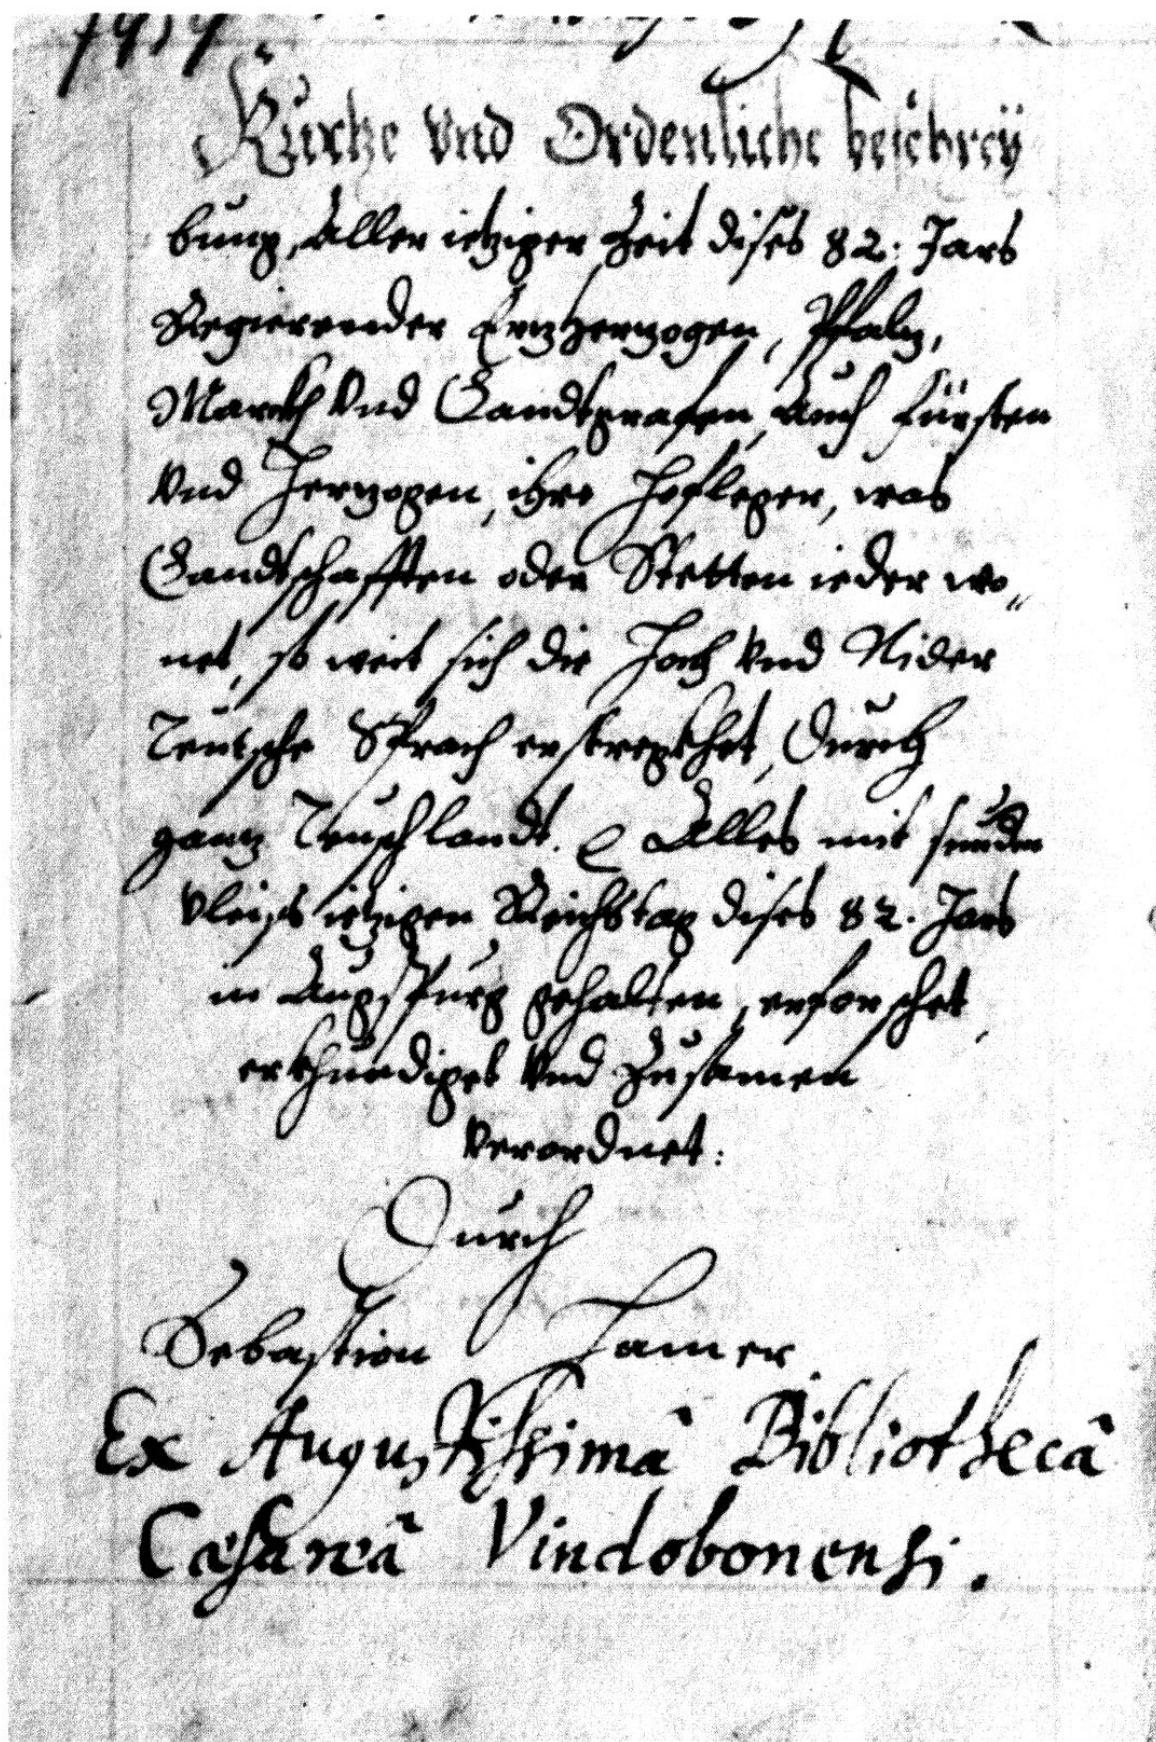 Kurtze vnd Ordenliche beschrey
bung, Aller ietziger Zeit dises 82. Jars
Regierender Ertzhertzogen, Pfaltz,
Marckh vnd Landtgrafen, Auch Fürsten
vnd Hertzogen, ihre Hofleger, was
Landtschafften oder Stetten ieder wo„
net, so weit sich die Hoch vnd Nider
Teutsche Sprach erstreckhet, Durch
gantz Teutschlandt. Alles mit
vleiss ietzigen Reichstag dises 82. Jars
in Augspurg gehalten, erforschet,
erkhundiget vnd Zusamen
verordnet:
Durch
Sebastion Hamer
Ex Augustissimâ Bibliothecâ
Cæsareâ Vindobonensi.